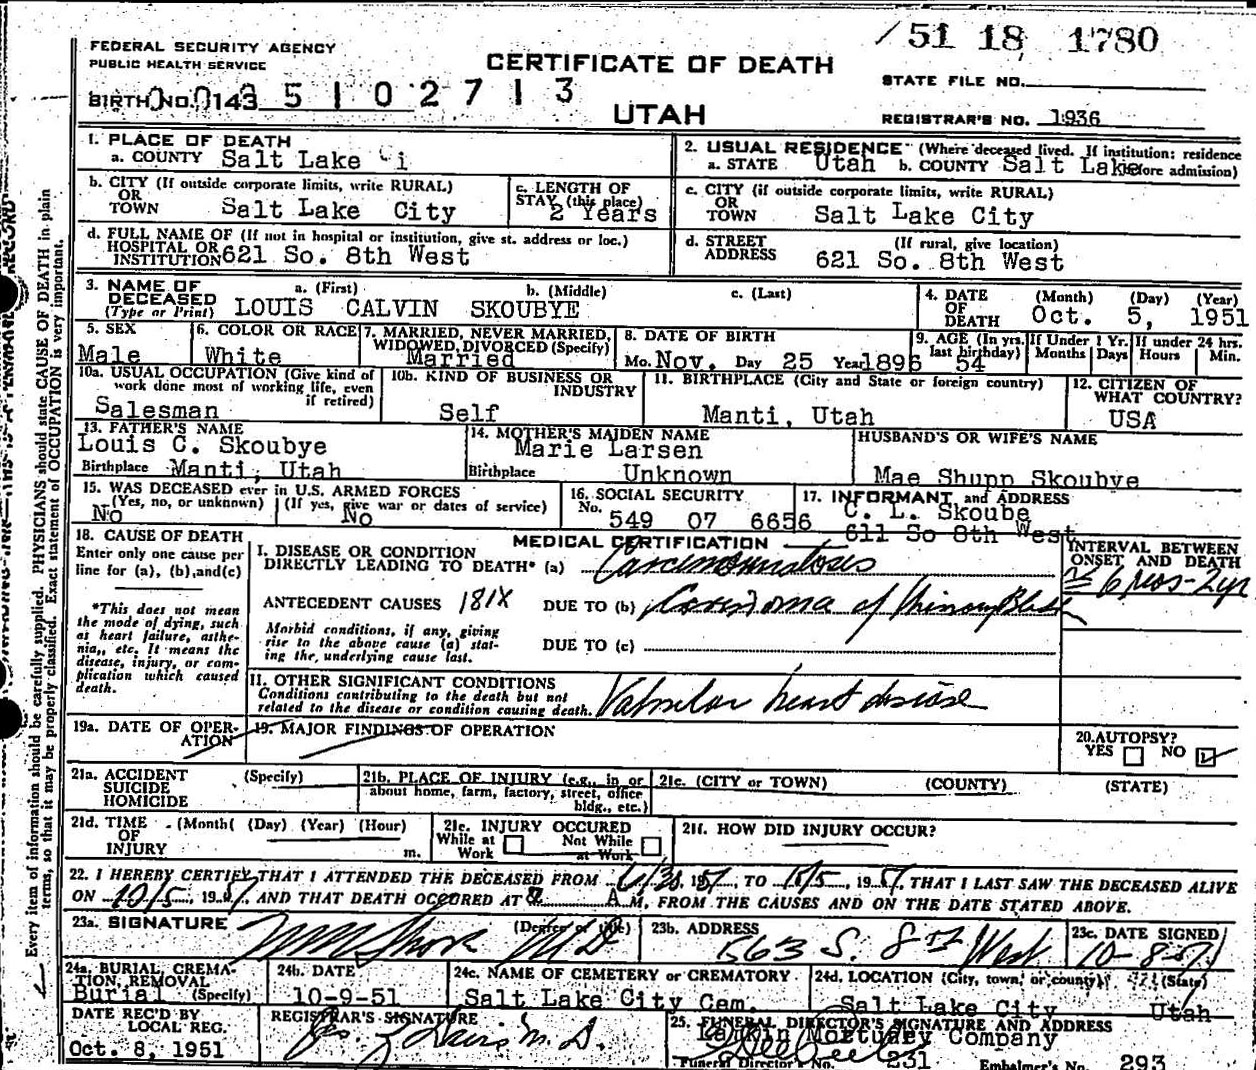 /51 18 1780
FEDERAL SECURITY AGENCY
PUBLIC HEALTH SERVICE
CERTIFICATE OF DEATH
STATE FILE NO.
BIRTH NO. 0143 5 1 0 2 7 1 3
UTAH
REGISTRAR'S NO. 1936
1. PLACE OF DEATH
a. COUNTY Salt Lake
2. USUAL RESIDENCE (Where deceased lived. If institution: residence before admission)
a. STATE Utah b. COUNTY Salt Lake
b. CITY (If outside corporate limits, write RURAL)
OR
TOWN Salt Lake City
c. LENGTH OF
STAY (this place)
2 Years
c. CITY (if outside corporate limits, write RURAL)
OR
TOWN Salt Lake City
d. FULL NAME OF (If not in hospital or institution, give st. address or loc.)
HOSPITAL OR
INSTITUTION 621 So. 8th West
d. STREET (If rural, give location)
ADDRESS 621 So. 8th West
3. NAME OF DECEASED (Type or Print)
a. (First) b. (Middle) c. (Last)
LOUIS CALVIN SKOUBYE
4. DATE OF DEATH (Month) (Day) (Year)
Oct. 5, 1951
5. SEX
Male
6. COLOR OR RACE
White
7. MARRIED, NEVER MARRIED,
WIDOWED, DIVORCED (Specify)
Married
8. DATE OF BIRTH
Mo. Nov. Day 25 Year 1896
9. AGE (In yrs. last birthday)
54
If Under 1 Yr.
Months Days
If under 24 hrs.
Hours Min.
10a. USUAL OCCUPATION (Give kind of
work done most of working life, even
if retired)
Salesman
10b. KIND OF BUSINESS OR
INDUSTRY
Self
11. BIRTHPLACE (City and State or foreign country)
Manti, Utah
12. CITIZEN OF
WHAT COUNTRY?
USA
13. FATHER'S NAME
Louis C. Skoubye
Birthplace Manti, Utah
14. MOTHER'S MAIDEN NAME
Marie Larsen
Birthplace Unknown
HUSBAND'S OR WIFE'S NAME
Mae Shupp Skoubye
15. WAS DECEASED ever in U.S. ARMED FORCES
(Yes, no, or unknown) (If yes, give war or dates of service)
No No
16. SOCIAL SECURITY
No. 549 07 6656
17. INFORMANT and ADDRESS
C. L. Skoube
611 So 8th West
18. CAUSE OF DEATH
Enter only one cause per
line for (a), (b), and (c)
*This does not mean
the mode of dying, such
as heart failure, asthe-
nia, etc. It means the
disease, injury, or com-
plication which caused
death.
MEDICAL CERTIFICATION
INTERVAL BETWEEN
ONSET AND DEATH
I. DISEASE OR CONDITION
DIRECTLY LEADING TO DEATH* (a) Carcinomatosis
ANTECEDENT CAUSES 181X DUE TO (b) Carcinoma of
Morbid conditions, if any, giving
rise to the above cause (a) stat-
ing the underlying cause last.
DUE TO (c)
II. OTHER SIGNIFICANT CONDITIONS
Conditions contributing to the death but not
related to the disease or condition causing death.
Valvular heart disease
19a. DATE OF OPER-
ATION
19. MAJOR FINDINGS OF OPERATION
20. AUTOPSY?
YES NO
21a. ACCIDENT (Specify)
SUICIDE
HOMICIDE
21b. PLACE OF INJURY (e.g., in or
about home, farm, factory, street, office
bldg., etc.)
21c. (CITY or TOWN) (COUNTY) (STATE)
21d. TIME (Month) (Day) (Year) (Hour)
OF
INJURY m.
21e. INJURY OCCURED
While at Work Not While at Work
21f. HOW DID INJURY OCCUR?
22. I HEREBY CERTIFY THAT I ATTENDED THE DECEASED FROM 6/30, 1951, TO 10/5, 1951, THAT I LAST SAW THE DECEASED ALIVE
ON 10/5, 1951, AND THAT DEATH OCCURED AT 2 A M, FROM THE CAUSES AND ON THE DATE STATED ABOVE.
23a. SIGNATURE (Degree or title)
M D
23b. ADDRESS
563 S. 8th West
23c. DATE SIGNED
10-8-51
24a. BURIAL, CREMA-
TION, REMOVAL
Burial (Specify)
24b. DATE
10-9-51
24c. NAME OF CEMETERY or CREMATORY
Salt Lake City Cem.
24d. LOCATION (City, town, or county) (State)
Salt Lake City Utah
DATE REC'D BY
LOCAL REG.
Oct. 8, 1951
REGISTRAR'S SIGNATURE
M. D.
25. FUNERAL DIRECTOR'S SIGNATURE AND ADDRESS
Mortuary Company
Funeral Director's No. 231 Embalmer's No. 293
Every item of information should be carefully supplied. PHYSICIANS should state CAUSE OF DEATH in plain
terms, so that it may be properly classified. Exact statement of OCCUPATION is very important.